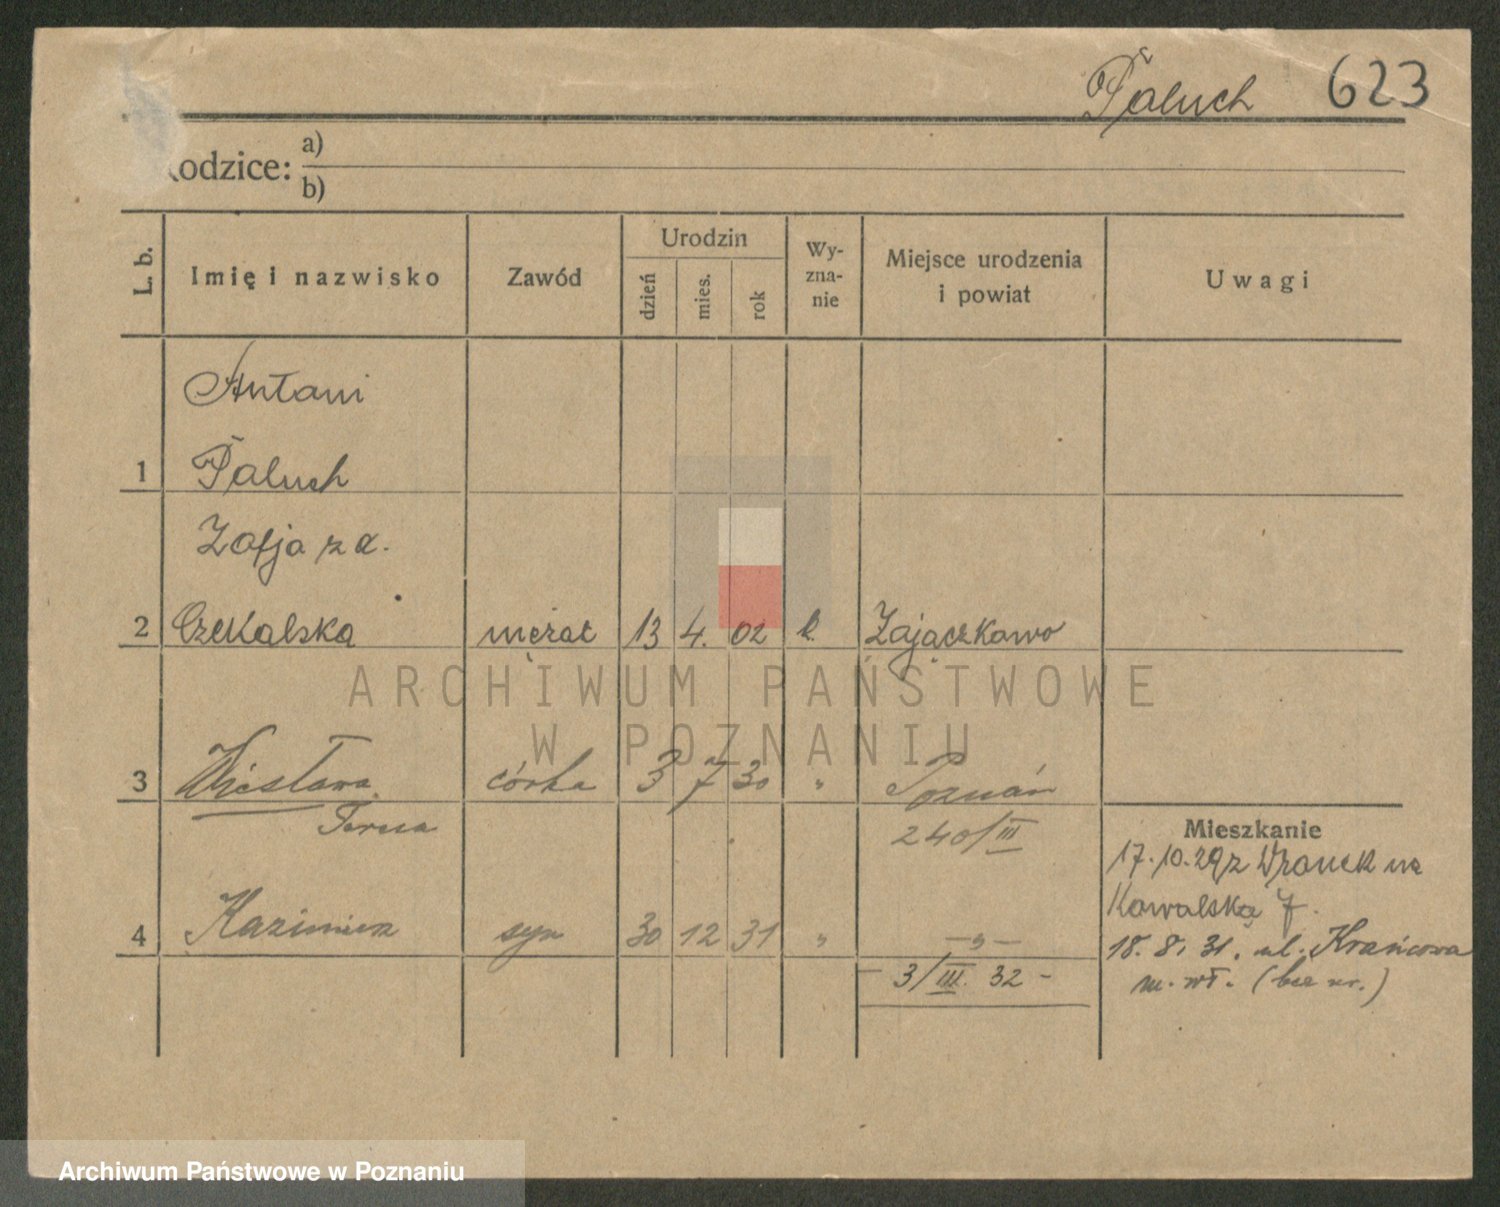 Paluch 623
Rodzice: a)
b)
L. b. Imię i nazwisko Zawód Urodzin dzień mies. rok Wy-zna-nie Miejsce urodzenia i powiat Uwagi
Antoni
1 Paluch
Zofja z d.
2 Czekalska mężat 13 4. 02 k. Zajączkowo
ARCHIWUM PAŃSTWOWE
W POZNANIU
3 Wiesława córka 3 7 30 " Poznań
240/III
Mieszkanie
17.10.29 z Wronek na
Kowalską 7.
4 Kazimierz syn 30 12 31 " —"—
18. 8. 31. ul. Krańcowa
3/III. 32 -
m. wł. (bez nr.)
Archiwum Państwowe w Poznaniu